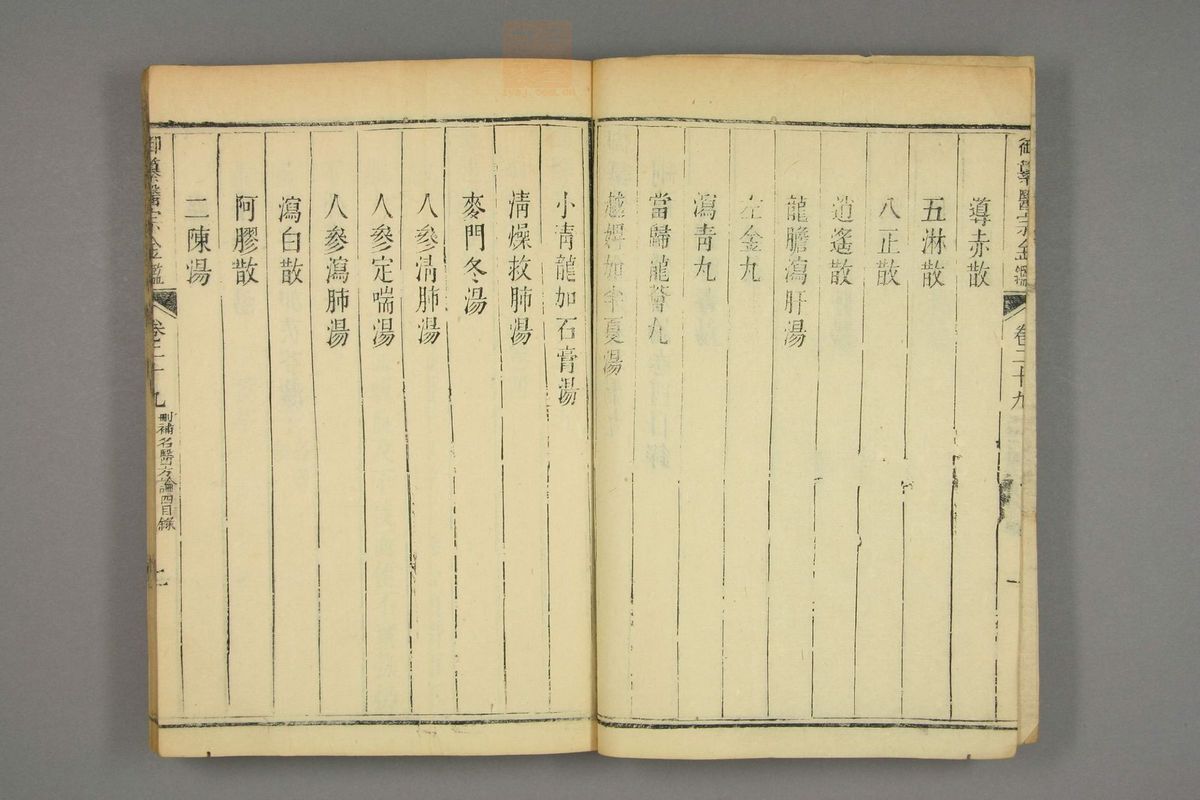 御纂醫宗金鑑 卷二十九 一
導赤散
五淋散
八正散
逍遙散
龍膽瀉肝湯
左金丸
瀉青丸
當歸龍薈丸
越婢加半夏湯
小青龍加石膏湯
清燥救肺湯
麥門冬湯
人參清肺湯
人參定喘湯
人參瀉肺湯
瀉白散
阿膠散
二陳湯
御纂醫宗金鑑 卷二十九 刪補名醫方論四目錄